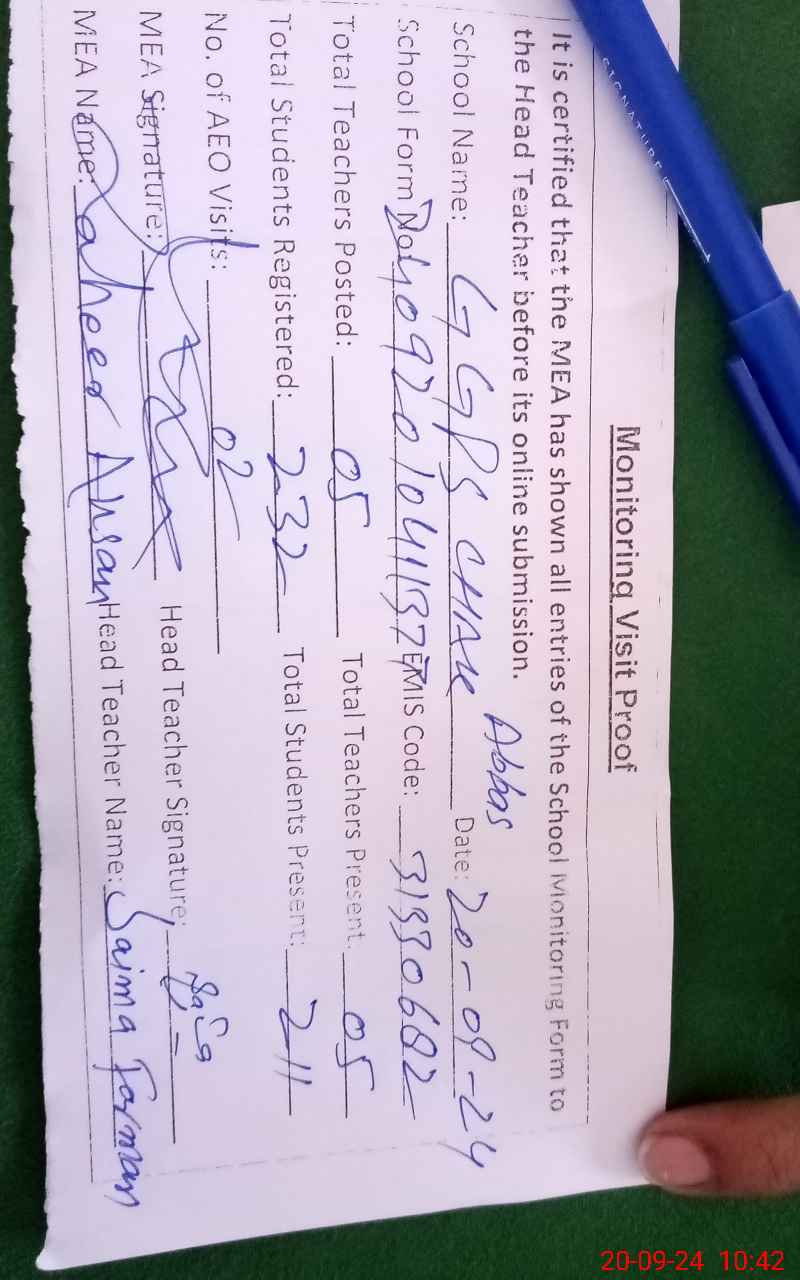 Monitoring Visit Proof
It is certified that the MEA has shown all entries of the School Monitoring Form to
the Head Teacher before its online submission.
School Name: GGPS CHAK Abbas Date: 20-09-24
School Form No: EMIS Code: 31330682
Total Teachers Posted: 05 Total Teachers Present: 05
Total Students Registered: 232 Total Students Present: 211
No. of AEO Visits: 02
MEA Signature: Head Teacher Signature:
MEA Name: Zaheer Ahsan Head Teacher Name: Saima Farman
SIGNATURE
20-09-24 10:42